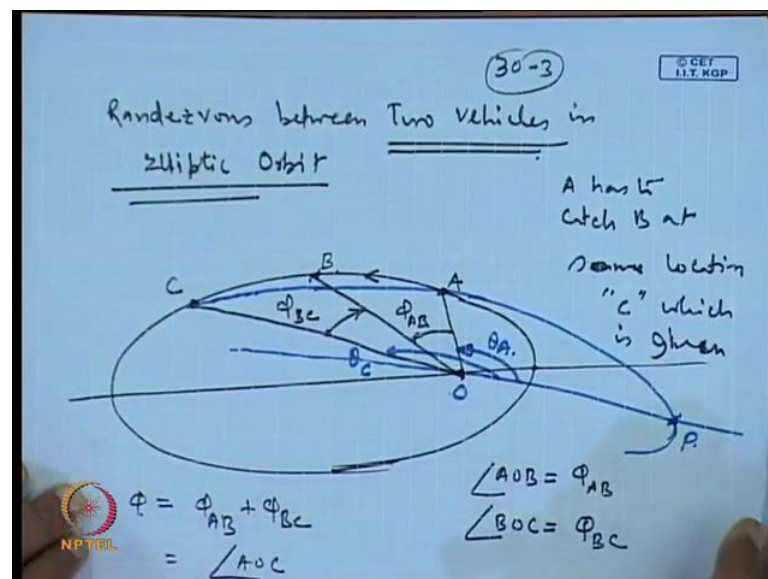 30-3
© CET
I.I.T. KGP
Randezvous between Two vehicles in
Elliptic Orbit
A has to
Catch B at
some location
"C" which
is given
C
B
A
Φ_BC
Φ_AB
θ_C
θ_A
O
P
Φ = Φ_AB + Φ_BC
= ∠AOC
∠AOB = Φ_AB
∠BOC = Φ_BC
NPTEL